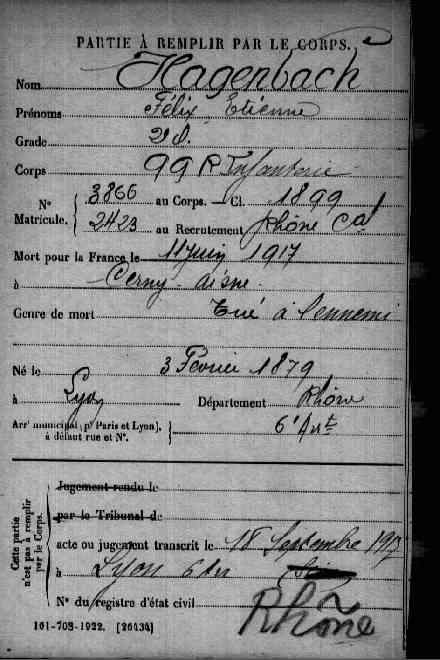 PARTIE À REMPLIR PAR LE CORPS.
Nom Hagenbach
Prénoms Félix, Etienne
Grade 2e S.
Corps 99 R Infanterie
N° Matricule. 3866 au Corps. — Cl. 1899
2423 au Recrutement Rhône Cal
Mort pour la France le 11 Juin 1917
à Cerny - Aisne
Genre de mort Tué à l'ennemi
Né le 3 Février 1879
à Lyon Département Rhône
Arrt municipal (pr Paris et Lyon), à défaut rue et N°. 6e Art
Cette partie n'est pas à remplir par le Corps.
Jugement rendu le
par le Tribunal de
acte ou jugement transcrit le 18 Septembre 1917
à Lyon 6 Arr
N° du registre d'état civil
Rhône
161-708-1922. [26434]